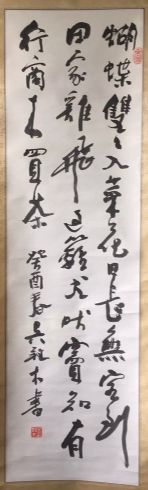 蝴蝶雙々入菜花日長無客到
田家雞飛過籬犬吠竇知有
行商來買茶 癸酉春吳木書